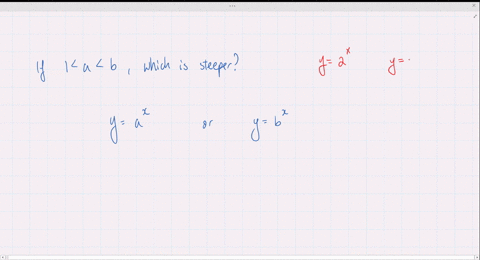 If 1 < a < b , which is steeper? y = 2^x y = -
y = a^x or y = b^x